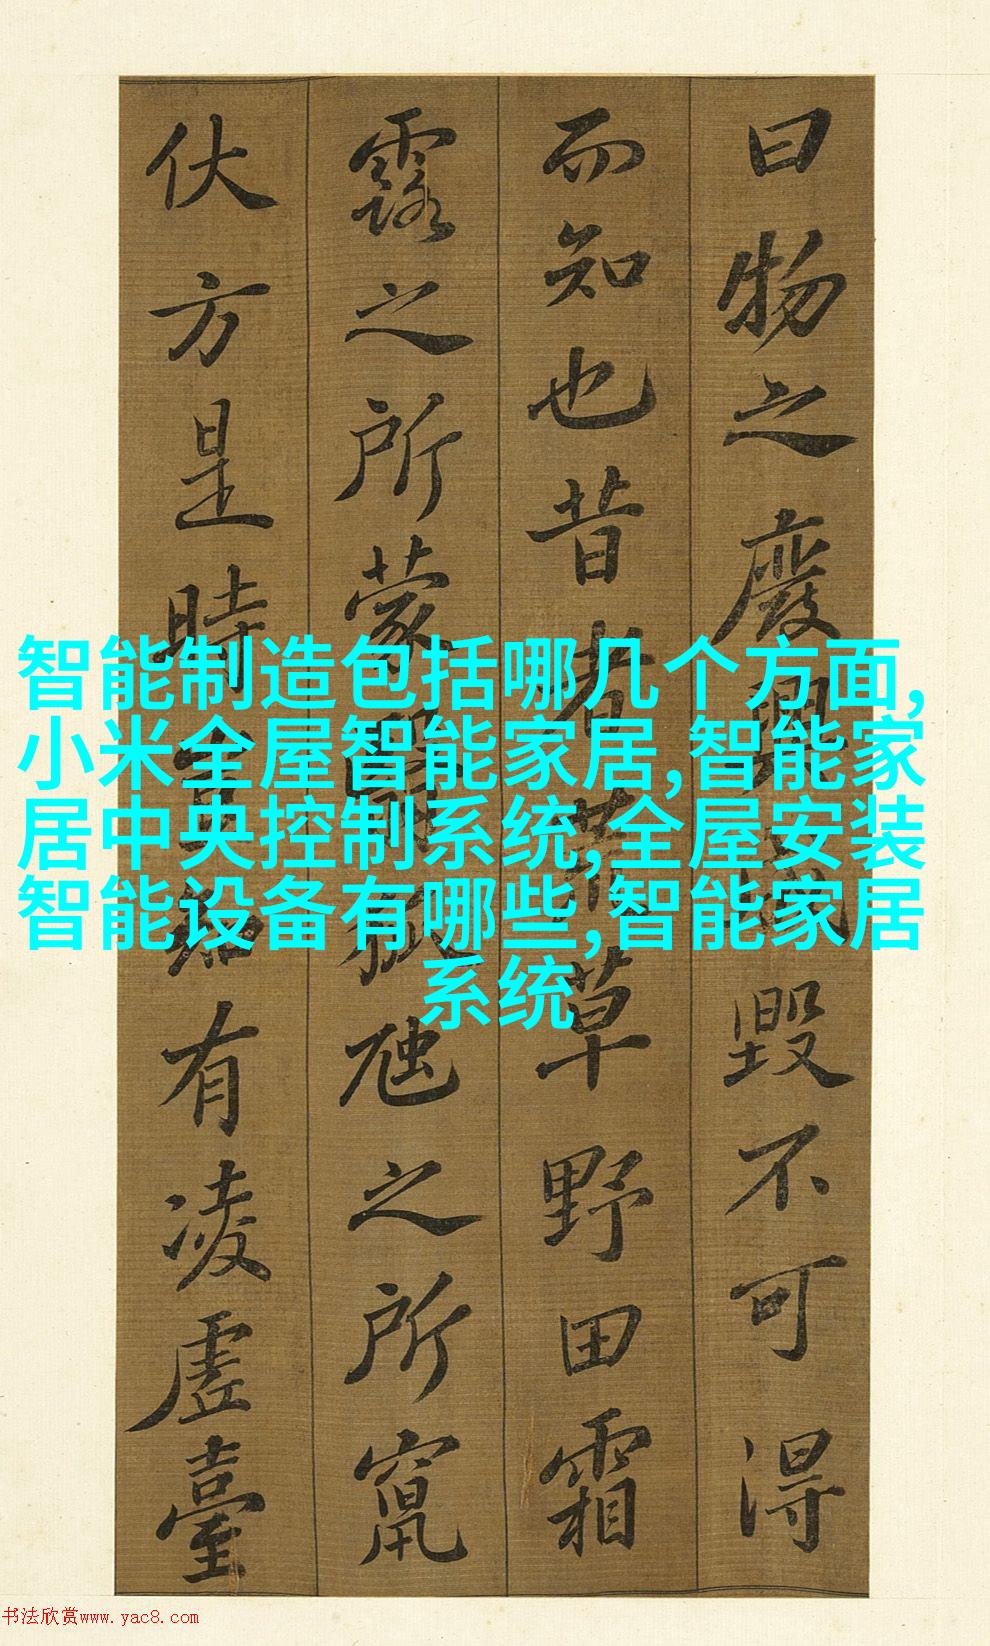 曰物之廢興成毀不可得
而知也昔者荒草野田霜
露之所蒙翳狐虺之所竄
伏方是時豈知有凌虛臺
智能制造包括哪几个方面,
小米全屋智能家居,智能家
居中央控制系统,全屋安装
智能设备有哪些,智能家居
系统
书法欣赏www.yac8.com